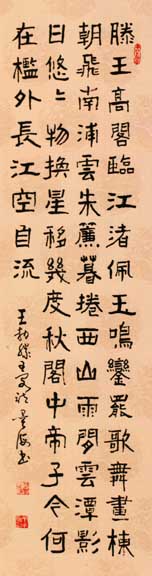 滕王高閣臨江渚佩玉鳴鑾罷歌舞畫棟
朝飛南浦雲朱簾暮捲西山雨閒雲潭影
日悠〻物換星移幾度秋閣中帝子今何
在檻外長江空自流
王勃滕王阁诗 书